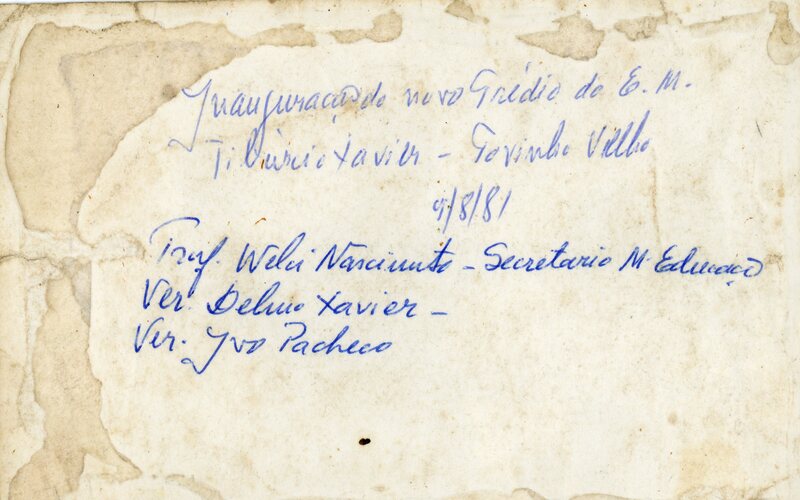 Inauguração do novo Prédio da E. M.
Tibúrcio Xavier – Povinho Velho
9/8/81
Prof. Welci Nascimento – Secretario M. Educação
Ver. Delmo Xavier –
Ver. Yvo Pacheco